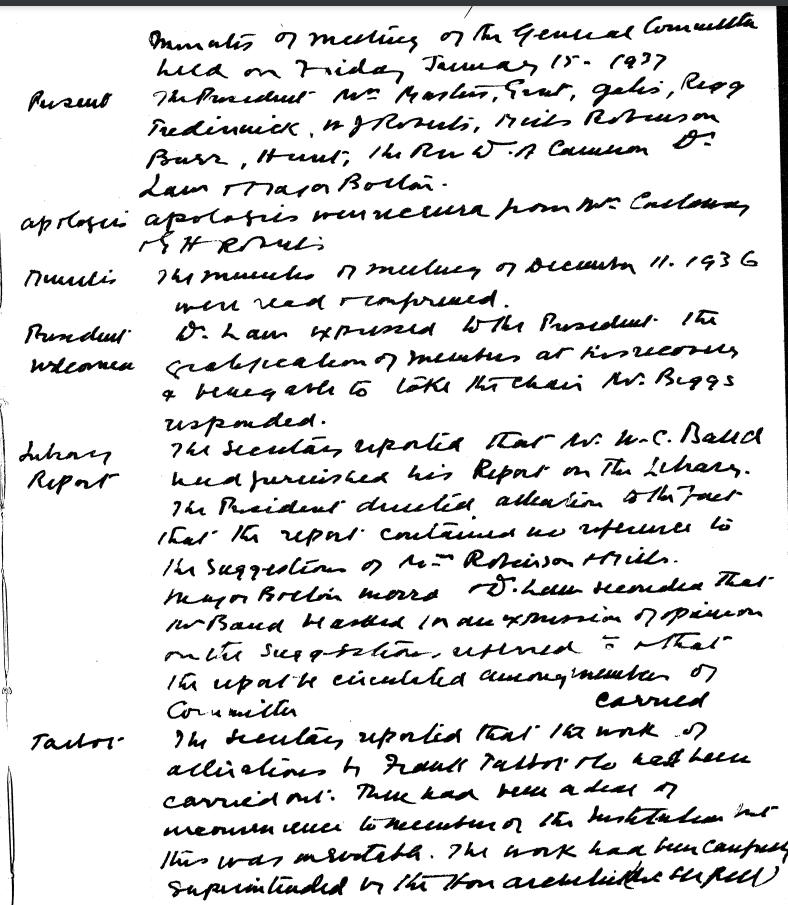 Minutes of meeting of the General Committee
held on Friday January 15. 1937
Present The President Mrs Masters, Grut, Gales, Rigg
Tredinnick, W J Roberts, Mills Robinson
Burr, Hunt, the Rev W. A Cameron Dr
Law & Major Bolton.
Apologies Apologies were received from Mr Calloway
& G H Roberts
Minutes The minutes of meeting of December 11. 1936
were read & confirmed.
President Dr. Law expressed to the President the
welcomed gratification of members at his recovery
& being able to take the chair Mr. Biggs
responded.
Library The Secretary reported that Mr. W. C. Band
Report had furnished his Report on the Library.
The President directed attention to the fact
that the report contained no reference to
the suggestions of Mrs Robinson & Mills.
Major Bolton moved & Dr. Law seconded that
Mr Band be asked for an expression of opinion
on the suggestions referred to & that
the report be circulated among members of
Committee carried
Talbot The Secretary reported that the work of
alterations by Frank Talbot & Co had been
carried out. There had been a deal of
inconvenience to members of the Institution but
this was inevitable. The work had been carefully
superintended by the Hon architect